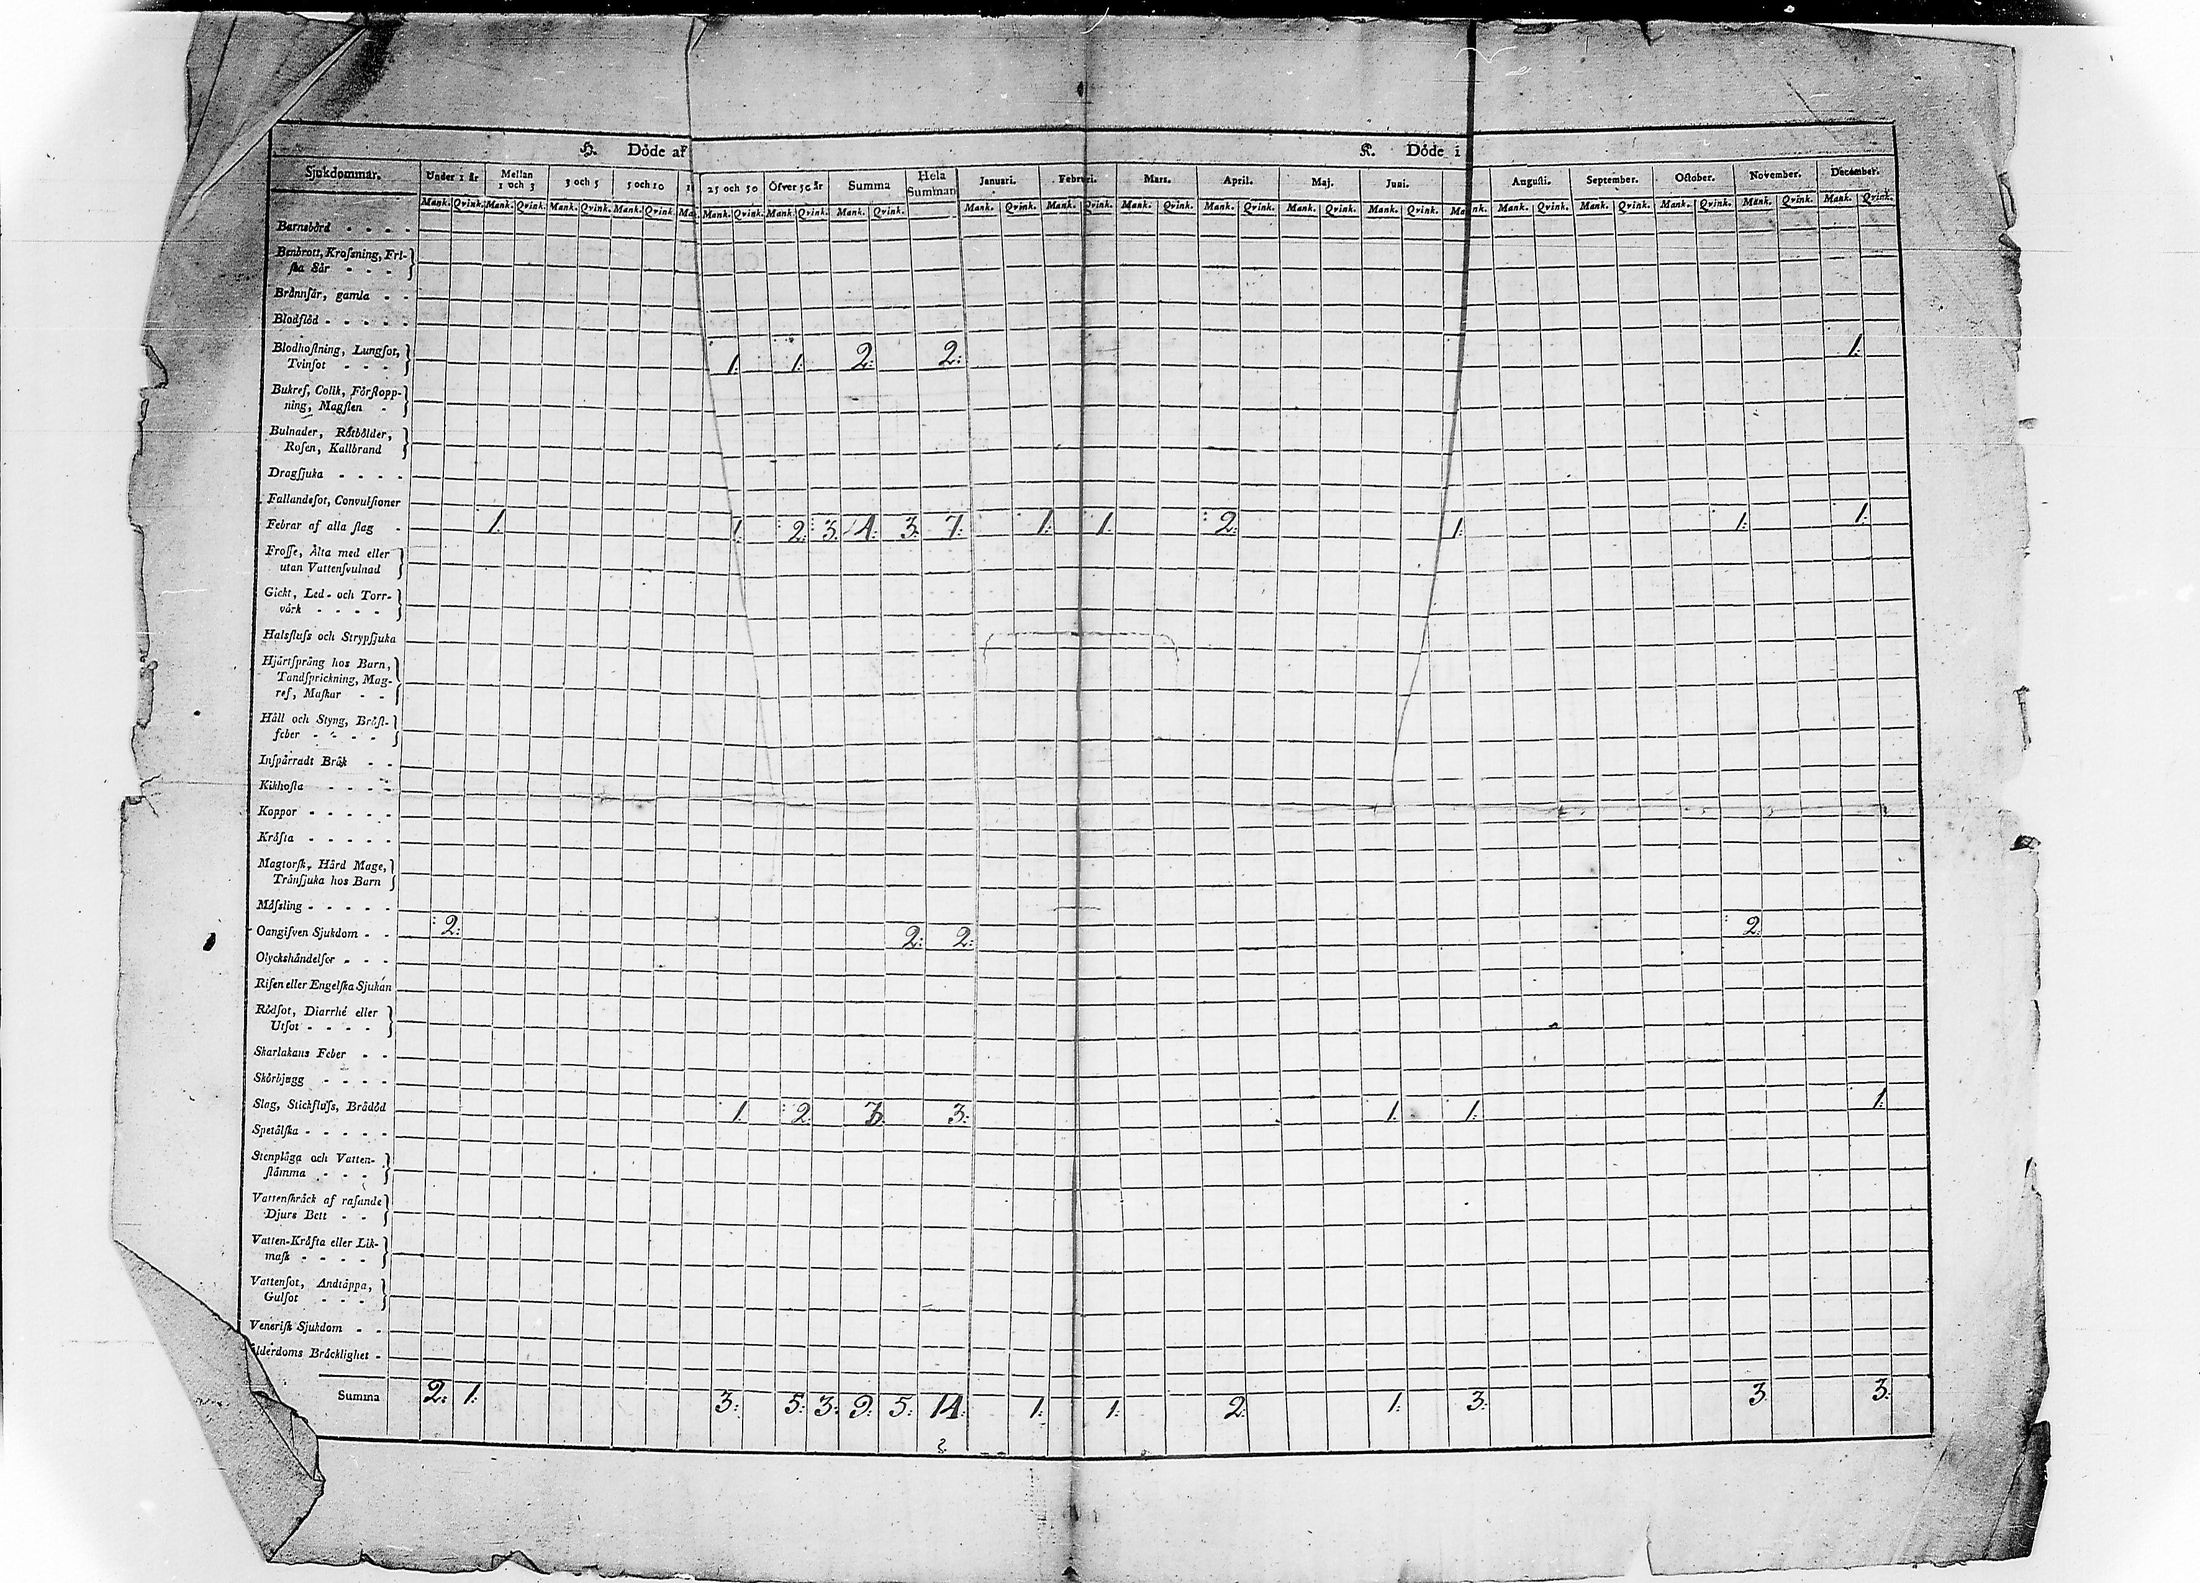 H. Döde af K. Döde i
Sjukdommar. Under 1 år Mellan 1 och 3 3 och 5 5 och 10 25 och 50 Öfver 50 år Summa Hela Summan Januari. Februari. Mars. April. Maj. Juni. Augusti. September. October. November. December.
Mank. Qvink. Mank. Qvink. Mank. Qvink. Mank. Qvink. Mank. Qvink. Mank. Qvink. Mank. Qvink. Mank. Qvink. Mank. Qvink. Mank. Qvink. Mank. Qvink. Mank. Qvink. Mank. Qvink. Mank. Mank. Qvink. Mank. Qvink. Mank. Qvink. Mank. Qvink. Mank. Qvink.
Barnsbörd - - - -
Benbrott, Krofsning, Fri-
ska Sår - - -
Brännsår, gamla - -
Blodflöd - - - - -
Blodhostning, Lungsot,
Tvinsot - - - 1: 1: 2: 2: 1:
Bukref, Colik, Förstopp-
ning, Magsten -
Bulnader, Rötbölder,
Rosen, Kallbrand
Dragsjuka - - - -
Fallandesot, Convulsioner
Febrar af alla slag - 1: 1: 2: 3: 4: 3: 7: 1: 1: 2: 1: 1: 1:
Frosse, Älta med eller
utan Vattensvulnad
Gickt, Led- och Torr-
värk - - - -
Halsfluss och Strypsjuka
Hjärtsprång hos Barn,
Tandsprickning, Mag-
ref, Maskar - -
Håll och Styng, Bröst-
feber - - - -
Inspärradt Bråk - -
Kikhosta - - - -
Koppor - - - - -
Kräfta - - - - -
Magtorsk, Hård Mage,
Tränsjuka hos Barn
Mässling - - - - -
Oangifven Sjukdom - - 2: 2: 2: 2:
Olyckshändelser - - -
Risen eller Engelska Sjukan
Rödsot, Diarrhé eller
Utsot - - - -
Skarlakans Feber - -
Skörbjugg - - - -
Slag, Stickfluss, Brådöd 1: 2: 3: 3: 1: 1: 1:
Spetälska - - - - -
Stenplåga och Vatten-
stämma - - -
Vattenskräck af rasande
Djurs Bett - -
Vatten-Kräfta eller Lik-
mask - - - -
Vattensot, Andtäppa,
Gulsot - - -
Venerisk Sjukdom - -
Ålderdoms Bräcklighet -
Summa 2: 1: 3: 5: 3: 9: 5: 14: 1: 1: 2: 1: 3: 3: 3: